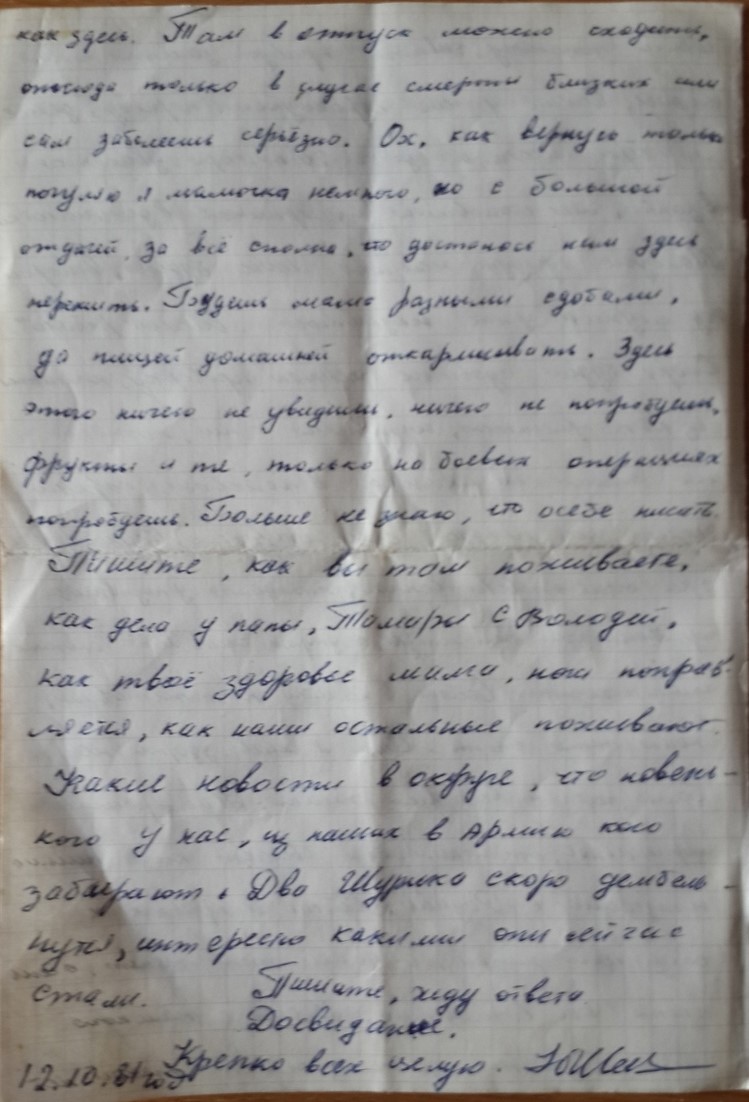 как здесь. Там в отпуск можно сходить,
отсюда только в случае смерти близких или
сам заболеешь серьёзно. Ох, как вернусь только
погуляю я мамочка немного, но с большой
отдачей, за всё сполна, что досталось нам здесь
пережить. Будешь мама разными сдобами,
да пищей домашней откармливать. Здесь
этого ничего не увидишь, ничего не попробуешь,
фрукты и те, только на боевых операциях
попробуешь. Больше не знаю, что о себе писать.
Пишите, как вы там поживаете,
как дела у папы, Тамары с Володей,
как твоё здоровье мама, ноги поправ-
ляется, как наши остальные поживают.
Какие новости в округе, что новень-
кого у нас, из наших в Армию кого
забирают. Два Шурика скоро дембель-
нутся, интересно какими они сейчас
стали. Пишите, жду ответа
Досвидание.
Крепко всех целую.
12.10.81 год